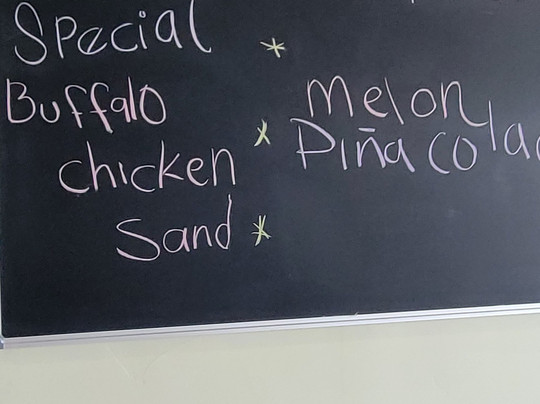 Special
Buffalo
chicken
Sand
Melon
Piña cola